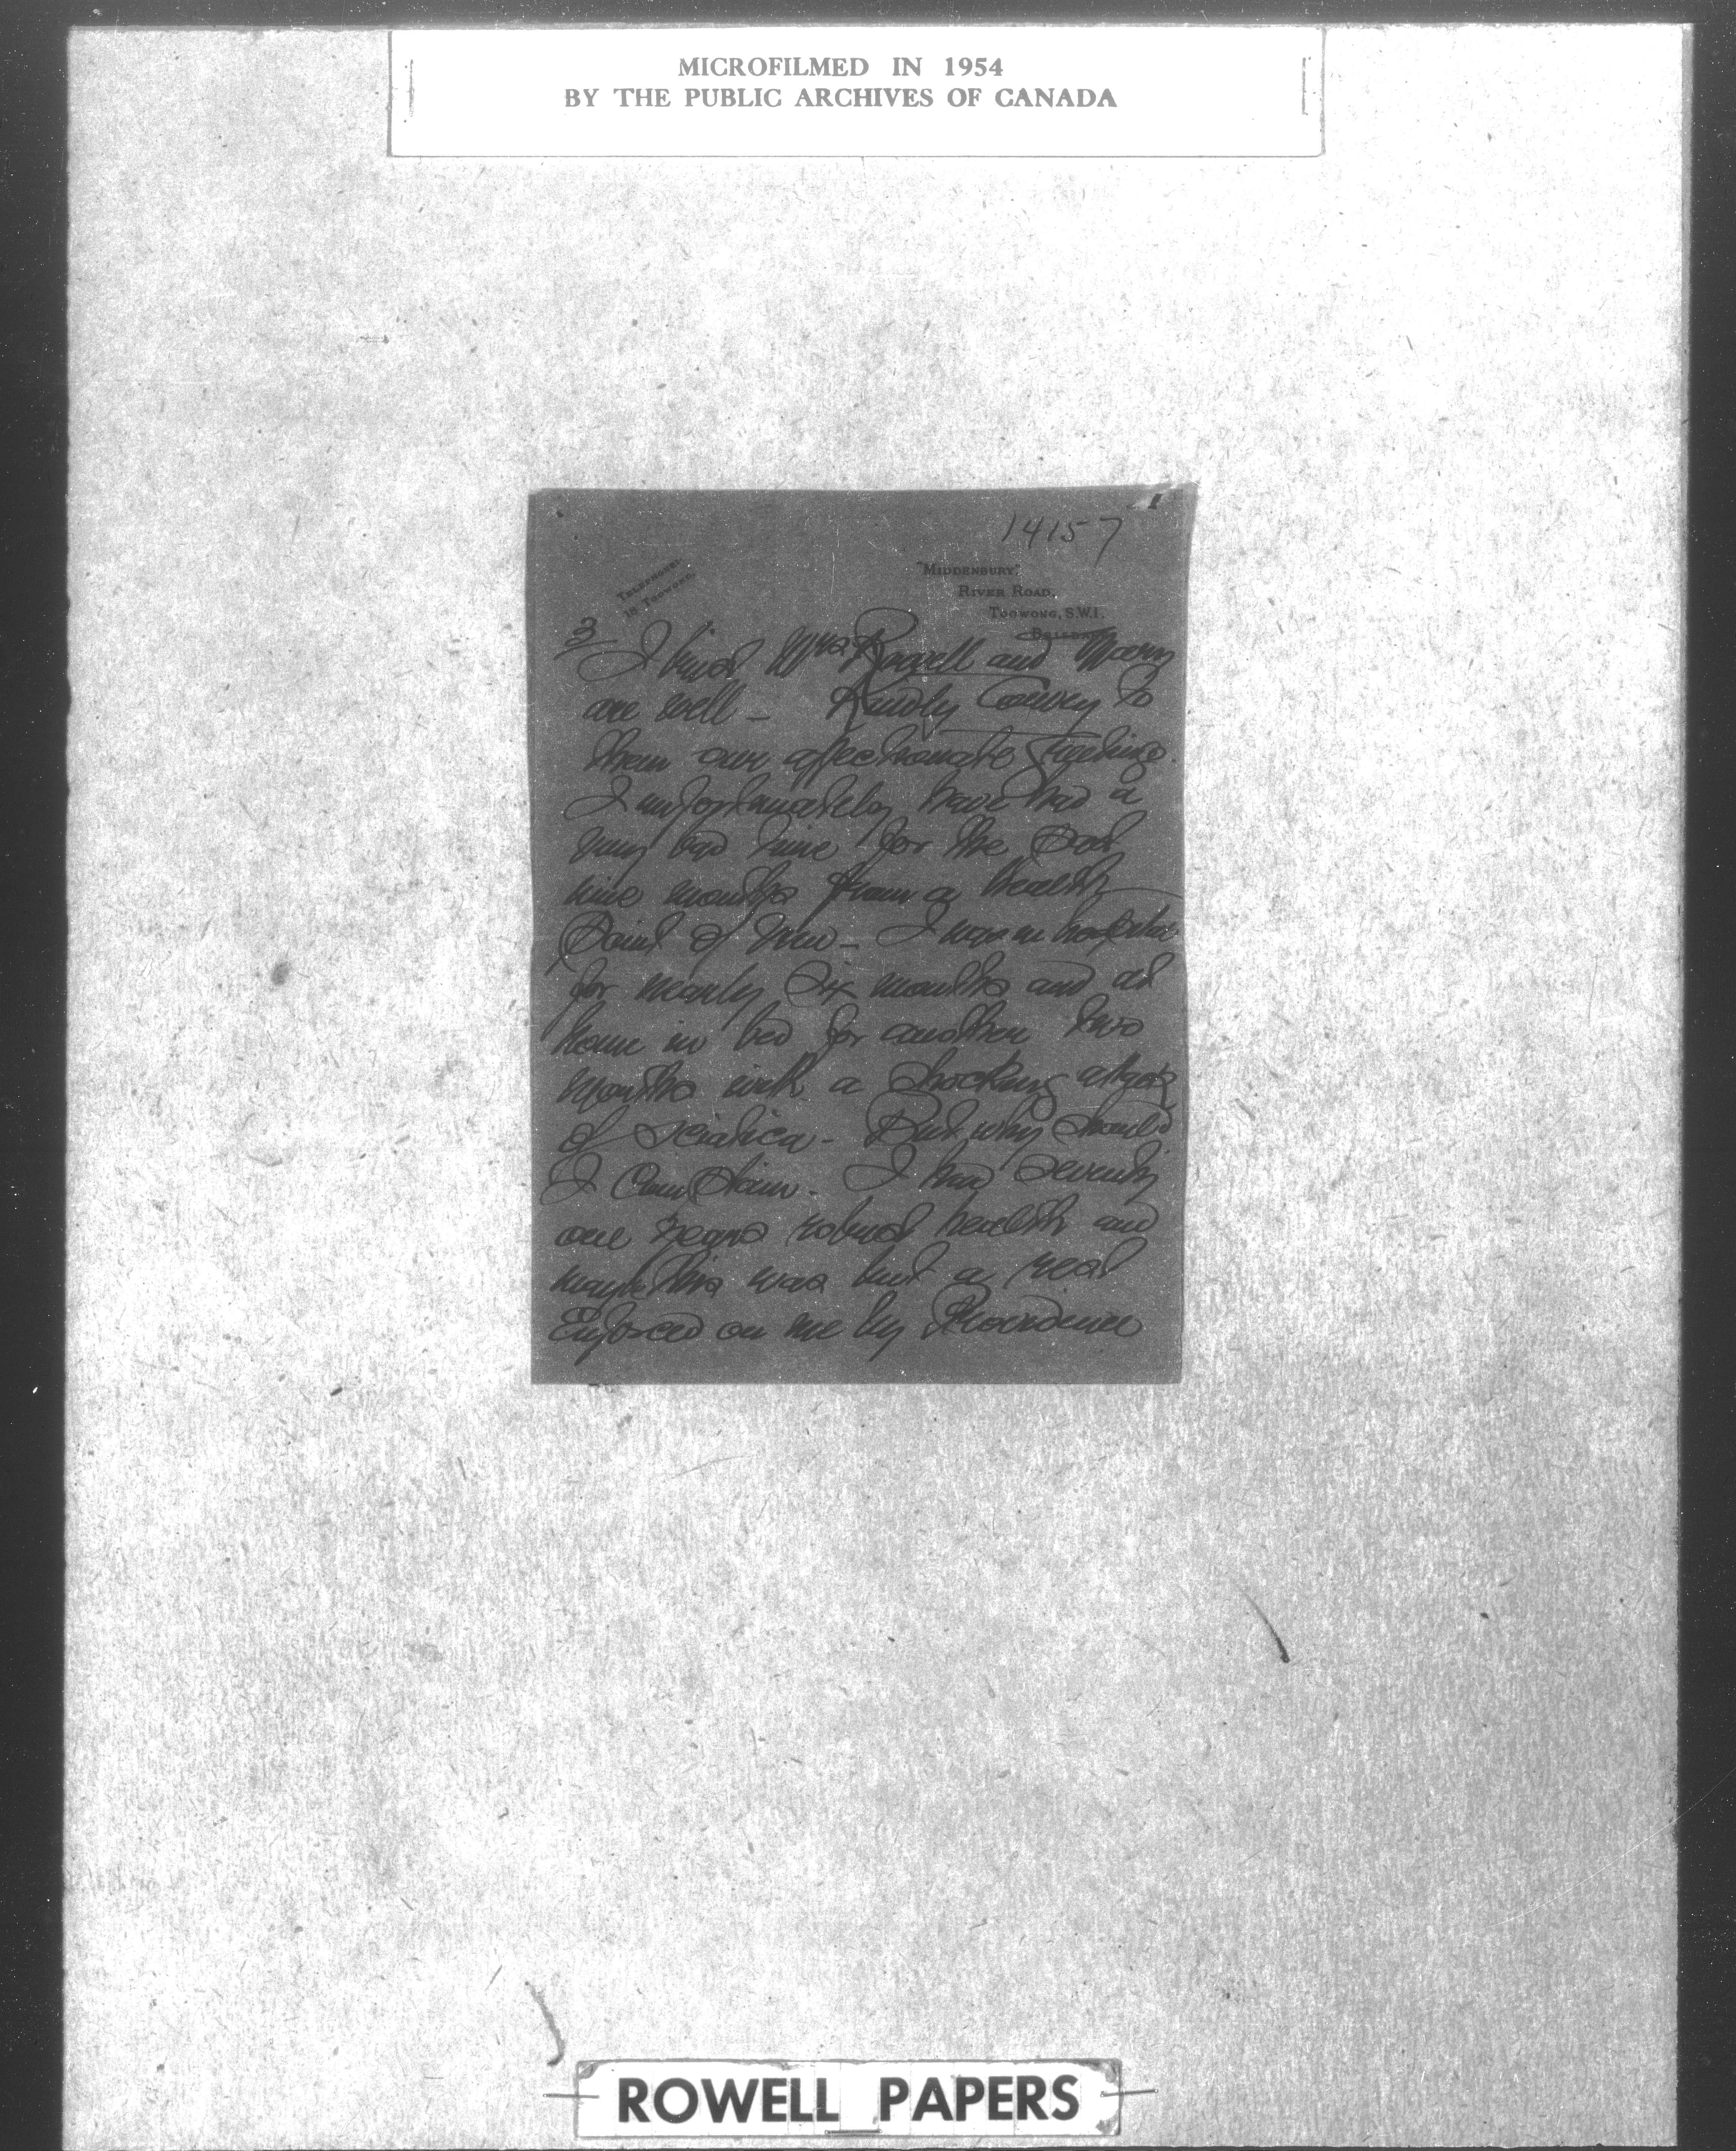 MICROFILMED IN 1954
BY THE PUBLIC ARCHIVES OF CANADA
14157
TELEPHONE:
18 TOOWONG.
"MIDDENBURY",
RIVER ROAD,
TOOWONG, S.W.1.
BRISBANE
3
I trust Mrs Rowell and Mary
are well - Kindly Convey to
them our affectionate Greetings.
I unfortunately have had a
very bad time for the Past
nine months from a health
Point of View - I was in hospital
for nearly Six months and at
home in bed for another two
months with a shocking attack
of Sciatica - But why should
I Complain - I had Seventy
one years robust health and
maybe this was but a rest
Enforced on me by Providence
ROWELL PAPERS